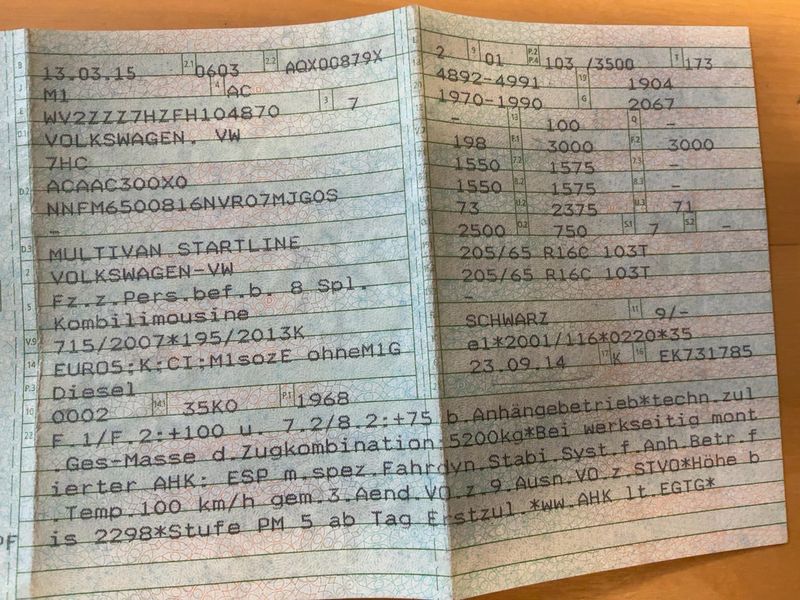 B 13.03.15 2.1 0603 2.2 AQX00879X
J M1 4 AC
E WV2ZZZ7HZFH104870 3 7
D.1 VOLKSWAGEN. VW
7HC
D.2 ACAAC300X0
NNFM6500816NVR07MJG0S
-
D.3 MULTIVAN STARTLINE
2 VOLKSWAGEN-VW
5 Fz.z.Pers.bef.b. 8 Spl.
Kombilimousine
V.9 715/2007*195/2013K
14 EURO5;K;CI;M1sozE ohneM1G
P.3 Diesel
10 0002 14.1 35K0 P.1 1968
L 2 9 01 P.2 P.4 103 /3500 T 173
18 4892-4991 19 1904
20 1970-1990 G 2067
12 - 13 100 Q -
V.7 198 F.1 3000 F.2 3000
7.1 1550 7.2 1575 7.3 -
8.1 1550 8.2 1575 8.3 -
U.1 73 U.2 2375 U.3 71
O.1 2500 O.2 750 S.1 7 S.2 -
15.1 205/65 R16C 103T
15.2 205/65 R16C 103T
15.3 -
R SCHWARZ 11 9/-
K e1*2001/116*0220*35
6 23.09.14 17 K 16 EK731785
22 F.1/F.2:+100 u. 7.2/8.2:+75 b.Anhängebetrieb*techn.zul
.Ges-Masse d.Zugkombination:5200kg*Bei werkseitig mont
ierter AHK: ESP m.spez.Fahrdyn.Stabi Syst.f.Anh.Betr.f
.Temp.100 km/h gem.3.Aend.VO.z.9.Ausn.VO.z.STVO*Höhe b
is 2298*Stufe PM 5 ab Tag Erstzul.*ww.AHK lt.EGTG*